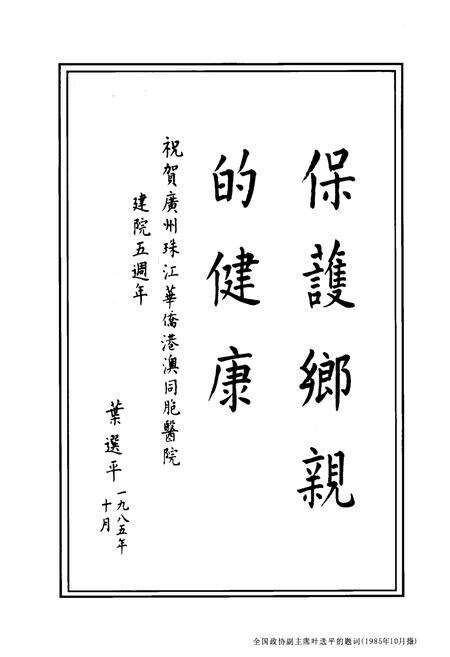 保護鄉親
的健康
祝賀廣州珠江華僑港澳同胞醫院
建院五週年
葉選平
一九八五年
十月
全国政协副主席叶选平的题词(1985年10月摄)